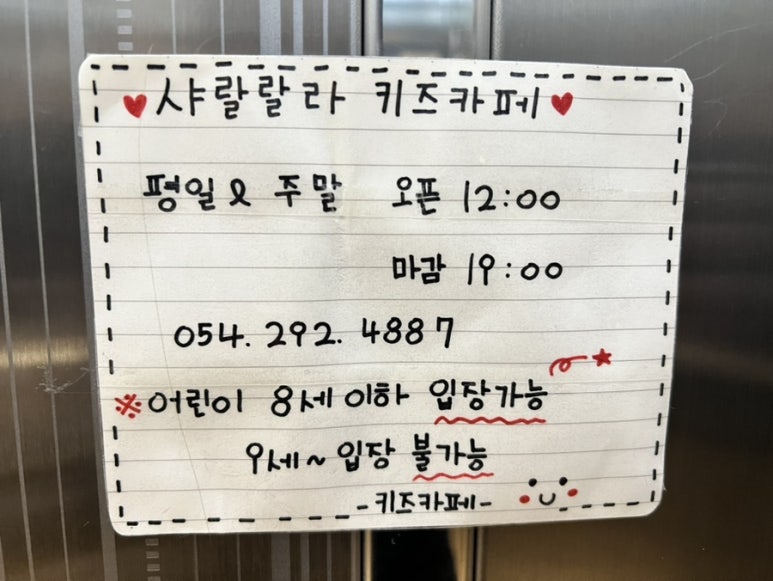 ♥샤랄랄라 키즈카페♥
평일 & 주말 오픈 12:00
마감 19:00
054. 292. 4887
※어린이 8세 이하 입장가능
9세~ 입장 불가능
-키즈카페-